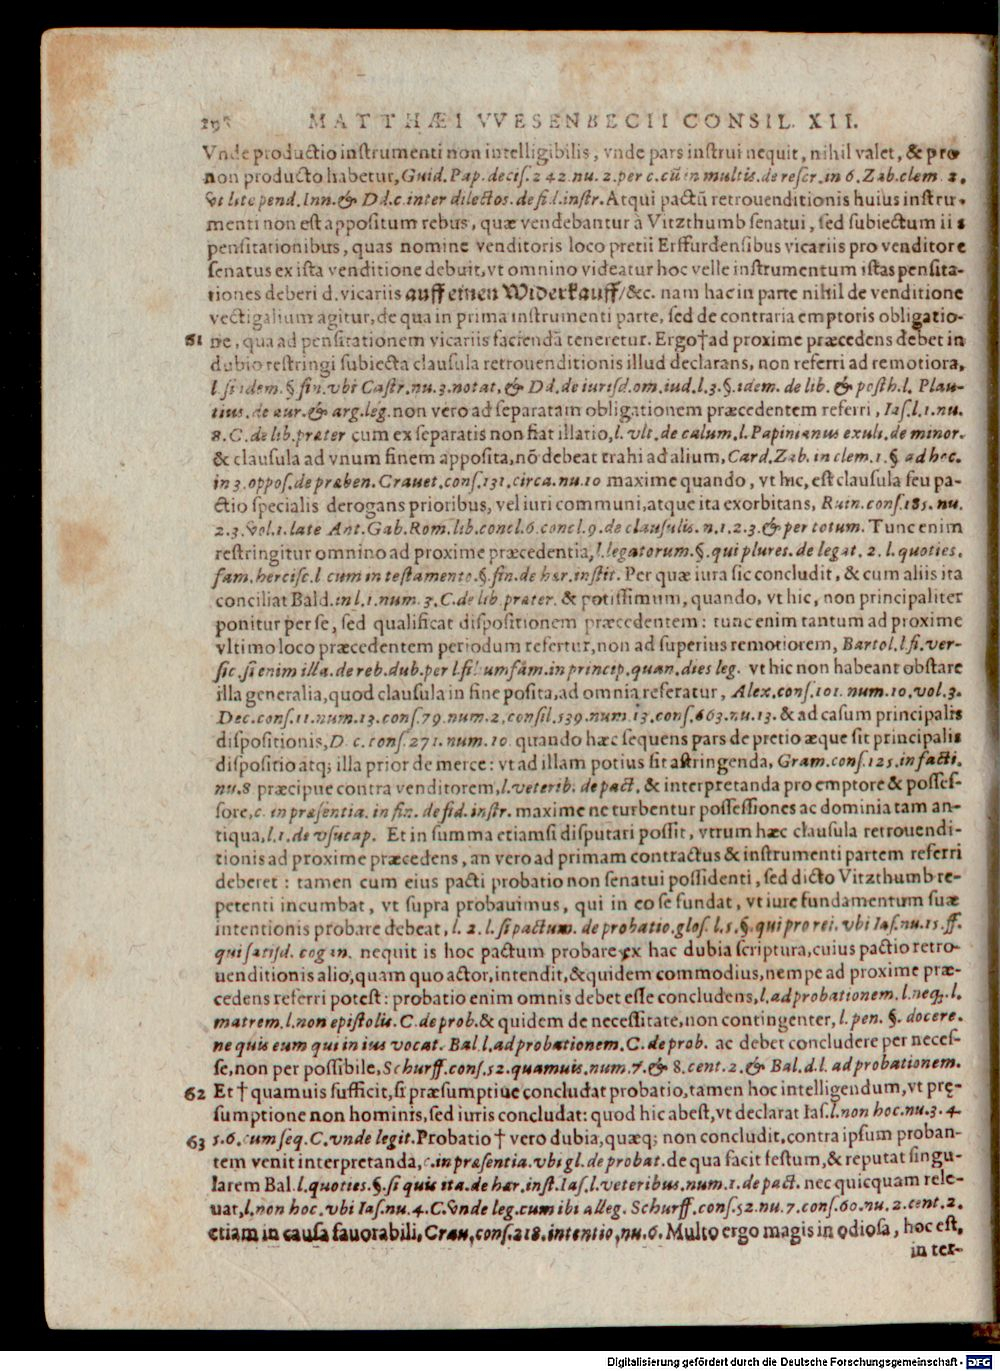 MATTHÆI VVESENBECII CONSIL. XII.
Vnde productio instrumenti non intelligibilis, vnde pars instrui nequit, nihil valet, & pro
non producto habetur, Guid. Pap. decis. 242. nu. 2. per c. cū in multis. de rescr. in 6. Zab. clem. 1.
vt lite pend. Inn. & Dd. c. inter dilectos. de fid. instr. Atqui pactū retrouenditionis huius instru-
menti non est appositum rebus, quæ vendebantur à Vitzthumb senatui, sed subiectum iis
pensitationibus, quas nomine venditoris loco pretii Erffurdensibus vicariis pro venditore
senatus ex ista venditione debuit, vt omnino videatur hoc velle instrumentum istas pensita-
tiones deberi d. vicariis auff einen Widerkauff/ &c. nam hac in parte nihil de venditione
vectigalium agitur, de qua in prima instrumenti parte, sed de contraria emptoris obligatio-
61 ne, qua ad pensitationem vicariis faciendā teneretur. Ergo † ad proxime præcedens debet in
dubio restringi subiecta clausula retrouenditionis illud declarans, non referri ad remotiora,
l. si idem. §. fin. vbi Castr. nu. 3. notat. & Dd. de iurisd. om. iud. l. 3. §. idem. de lib. & posth. l. Plau-
tius. de aur. & arg. leg. non vero ad separatam obligationem præcedentem referri, Ias. l. 1. nu.
8. C. de lib. præter cum ex separatis non fiat illatio, l. vlt. de calum. l. Papinianus exuli. de minor.
& clausula ad vnum finem apposita, nō debeat trahi ad alium, Card. Zab. in clem. 1. §. ad hoc.
in 3. oppos. de præben. Crauet. cons. 131. circa. nu. 10 maxime quando, vt hic, est clausula seu pa-
ctio specialis derogans prioribus, vel iuri communi, atque ita exorbitans, Ruin. cons. 181. nu.
2. 3. vol. 1. late Ant. Gab. Rom. lib. concl. 6. concl. 9. de clausulis. n. 1. 2. 3. & per totum. Tunc enim
restringitur omnino ad proxime præcedentia, l. legatorum. §. qui plures. de legat. 2. l. quoties.
fam. hercisc. l. cum in testamento. §. fin. de hær. instit. Per quæ iura sic concludit, & cum aliis ita
conciliat Bald. in l. 1. num. 3. C. de lib. præter. & potissimum, quando, vt hic, non principaliter
ponitur per se, sed qualificat dispositionem præcedentem: tunc enim tantum ad proxime
vltimo loco præcedentem periodum refertur, non ad superius remotiorem, Bartol. l. si. ver-
sic. si enim illa. de reb. dub. per l. si vsumfām. in princip. quan. dies leg. vt hic non habeant obstare
illa generalia, quod clausula in fine posita, ad omnia referatur, Alex. cons. 101. num. 10. vol. 3.
Dec. cons. 11. num. 13. cons. 79. num. 2. consil. 539. num. 13. cons. 663. nu. 13. & ad casum principalis
dispositionis, D. c. cons. 271. num. 10. quando hæc sequens pars de pretio æque sit principalis
dispositio atq; illa prior de merce: vt ad illam potius sit astringenda, Gram. cons. 125. in facti.
nu. 8 præcipue contra venditorem, l. veterib. de pact. & interpretanda pro emptore & posses-
sore, c. in præsentia. in fin. de fid. instr. maxime ne turbentur possessiones ac dominia tam an-
tiqua, l. 1. de vsucap. Et in summa etiamsi disputari possit, vtrum hæc clausula retrouendi-
tionis ad proxime præcedens, an vero ad primam contractus & instrumenti partem referri
deberet: tamen cum eius pacti probatio non senatui possidenti, sed dicto Vitzthumb re-
petenti incumbat, vt supra probauimus, qui in eo se fundat, vt iure fundamentum suæ
intentionis probare debeat, l. 2. l. si pactum. de probatio. glos. l. 5. §. qui pro rei. vbi Ias. nu. 15. ff.
qui satisd. cogan. nequit is hoc pactum probare ex hac dubia scriptura, cuius pactio retro-
uenditionis alio, quam quo actor, intendit, & quidem commodius, nempe ad proxime præ-
cedens referri potest: probatio enim omnis debet esse concludens, l. ad probationem. l. neq;. l.
matrem. l. non epistolis. C. de prob. & quidem de necessitate, non contingenter, l. pen. §. docere.
ne quis eum qui in ius vocat. Bal. l. ad probationem. C. de prob. ac debet concludere per neces-
se, non per possibile, Schurff. cons. 52. quamuis. num. 7. & 8. cent. 2. & Bal. d. l. ad probationem.
62 Et † quamuis sufficit, si præsumptiue concludat probatio, tamen hoc intelligendum, vt pre̜-
sumptione non hominis, sed iuris concludat: quod hic abest, vt declarat Ias. l. non hoc. nu. 3. 4.
63 5. 6. cum seq. C. vnde legit. Probatio † vero dubia, quæq; non concludit, contra ipsum proban-
tem venit interpretanda, c. in præsentia. vbi gl. de probat. de qua facit festum, & reputat singu-
larem Bal. l. quoties. §. si quis ita. de hær. inst. Ias. l. veteribus. num. 1. de pact. nec quicquam rele-
uat, l. non hoc. vbi Ias. nu. 4. C. vnde leg. cum ibi alleg. Schurff. cons. 52. nu. 7. cons. 60. nu. 2. cent. 2.
etiam in causa fauorabili, Crau. cons. 218. intentio, nu. 6. Multo ergo magis in odiosa, hoc est,
in ter-
Digitalisierung gefördert durch die Deutsche Forschungsgemeinschaft - DFG